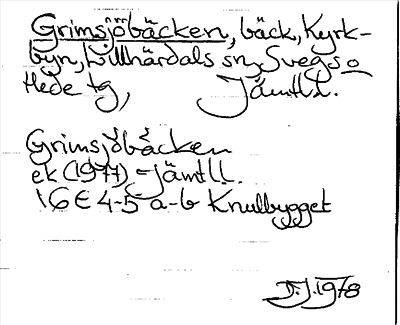 Grimsjöbäcken, bäck, Kyrk-
byn, Lillhärdals sn, Svegs o
Hede tg, Jämtl.l.
Grimsjöbäcken
ek (1977) = Jämtl.l.
16 E 4-5 a-b Knulbygget
D.J. 1978